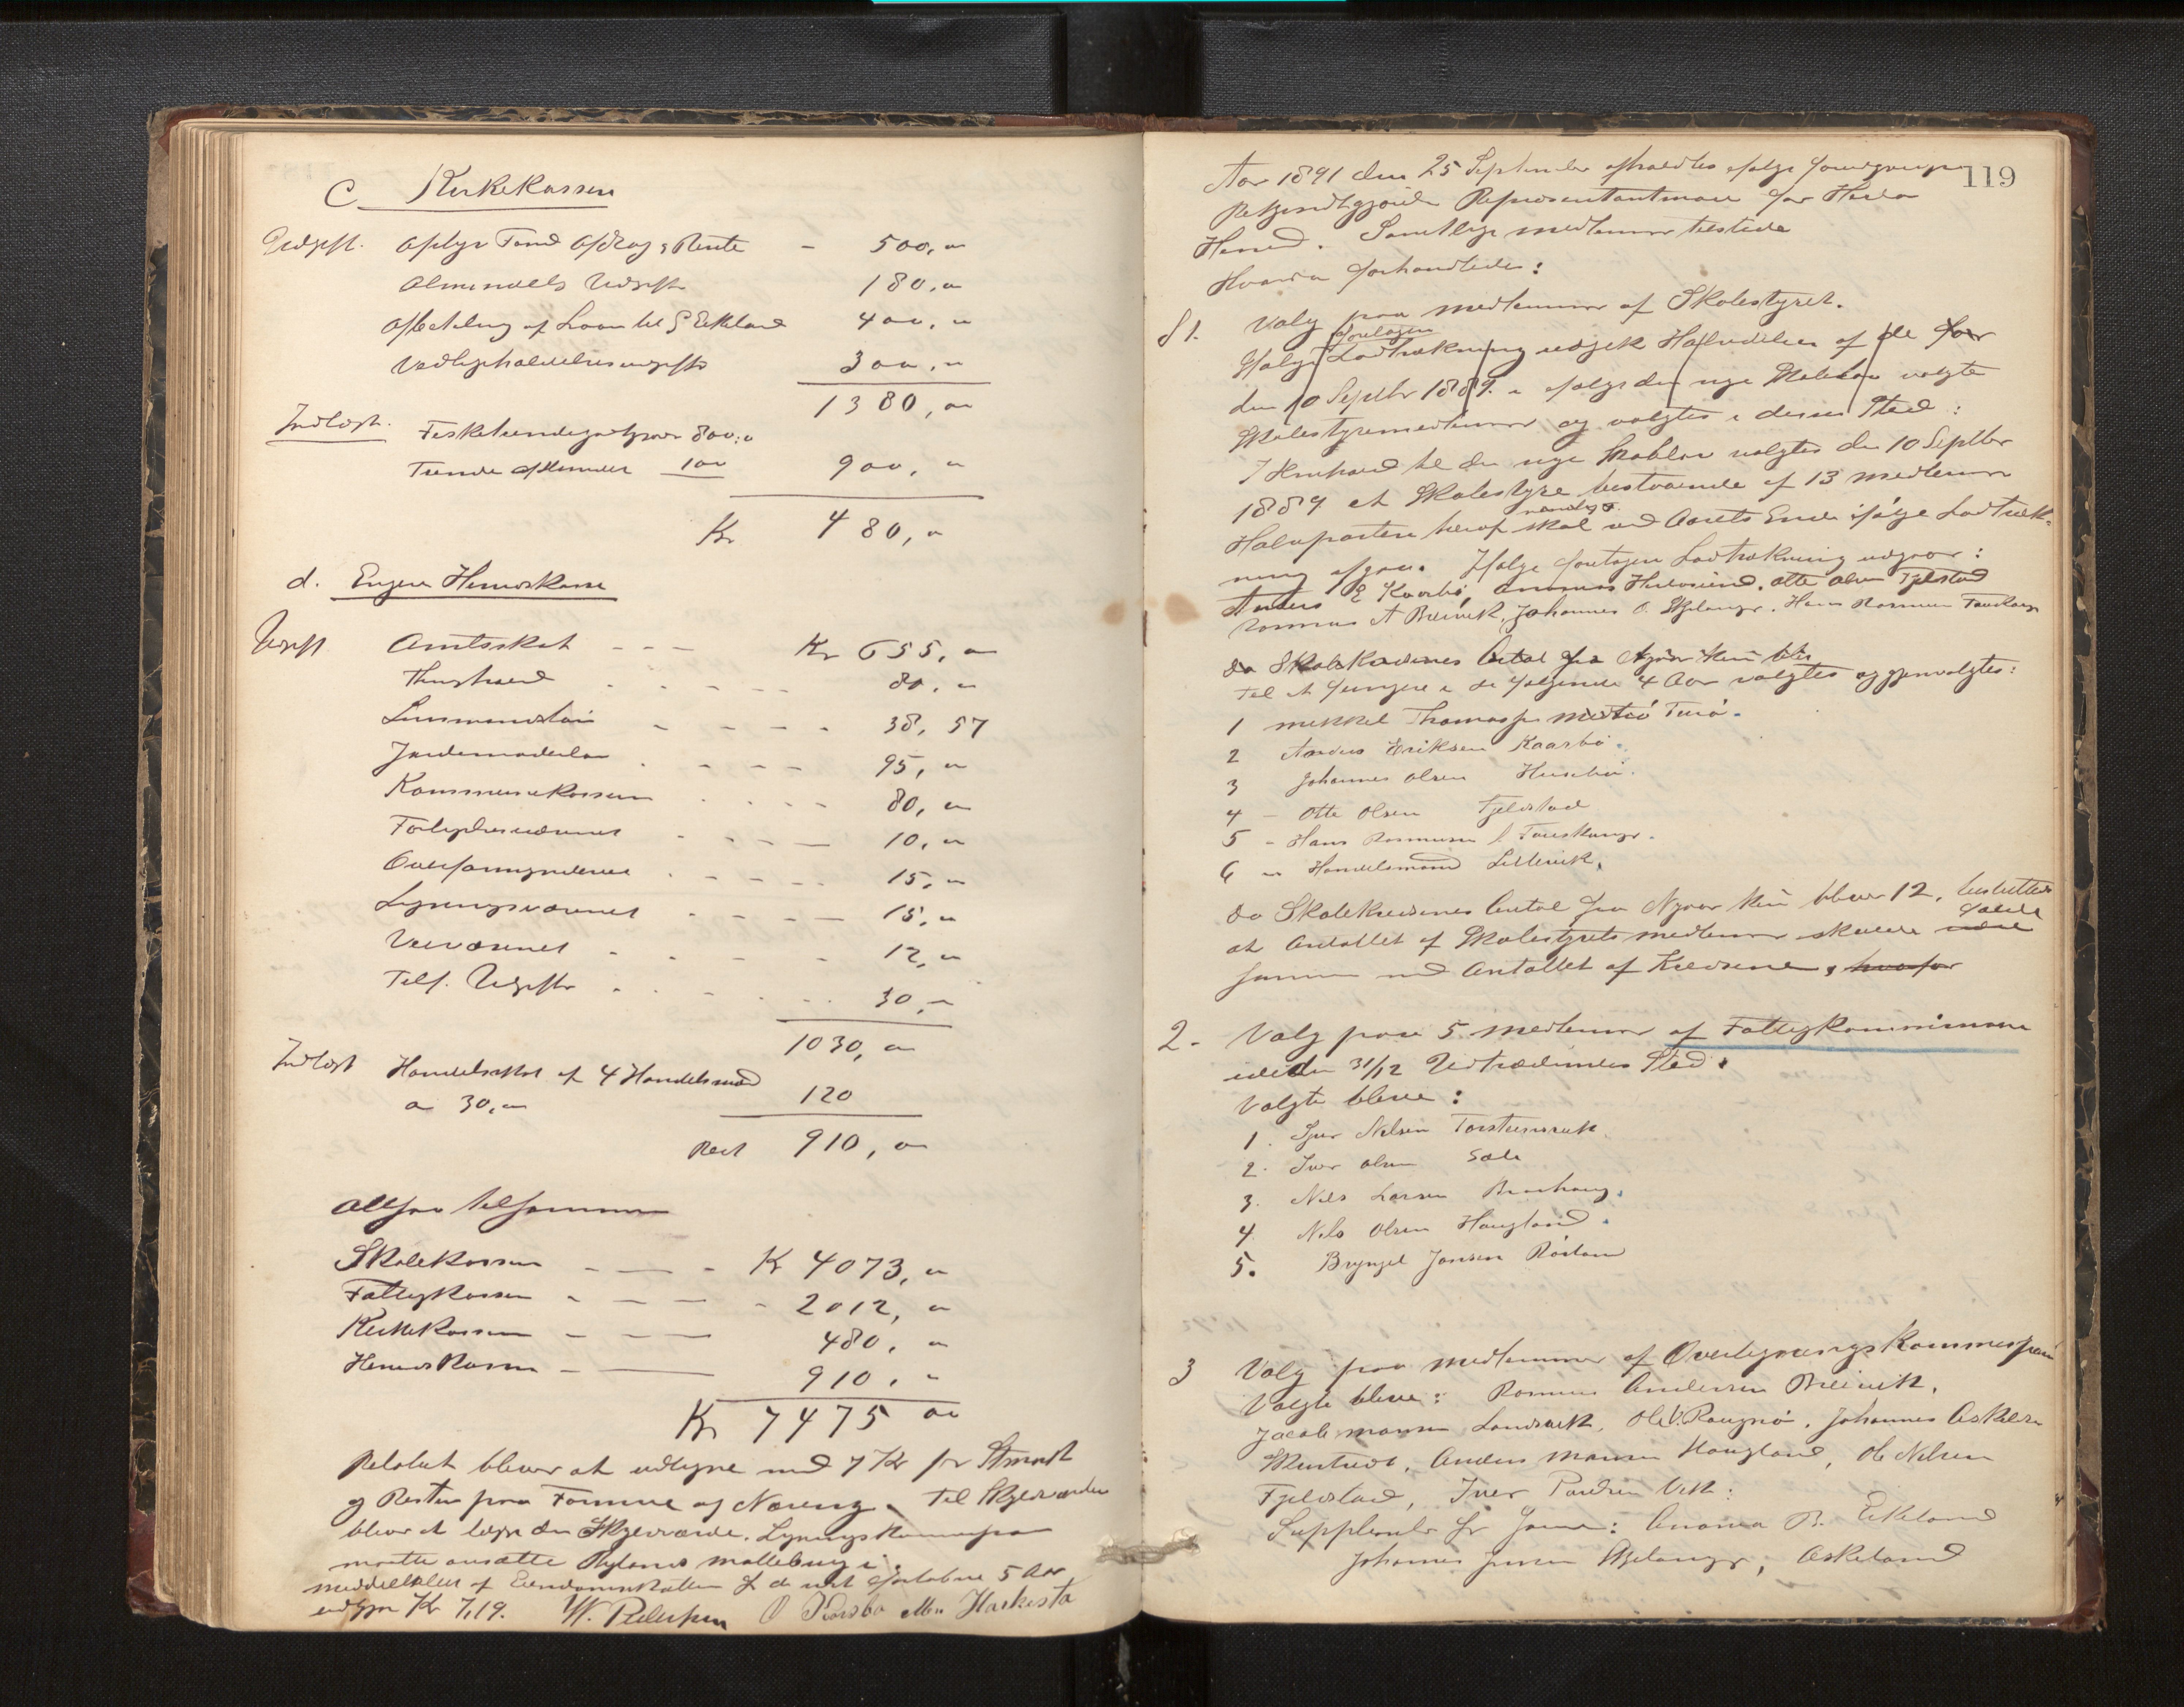 C Kirkekassen
Udgift. Oplys. Fond Afdrag & Rente - 500, "
Almindelig Udgift 180, "
Afbetaling af Laan til Eikeland 400, "
Vedligeholdelsesudgifter 300, "
1380, "
Indtægt. Fisketiende 800, "
Tiende af 100 900, "
Kr 480, "
d. Egen Herredskasse
Udgift Amtsskat - - - Kr 655, "
Thinghold 80, "
Lensmandsløn 38, 57
Jordemoderløn 95, "
Kommunekassen 80, "
Forligelsesvæsenet 10, "
Overformynderiet 15, "
Ligningsvæsenet 15, "
Veivæsenet 12, "
Telf. Udgifter 30, "
1030, "
Indtægt Handelsskat af 4 Handelsmænd
a 30, " 120
Rest 910, "
Altsaa tilsammen
Skolekassen - - - Kr 4073, "
Fattigkassen - - - 2012, "
Kirkekassen - - - 480, "
Herredskassen - 910, "
Kr 7475 "
Beslutet blev at udligne med 7 Kr pr Skmark
og Resten paa Formue og Næring. Til
blev at lægge den Skyldværdi. Ligningskommissionen
maatte ansætte
Middeltallet af Eiendomsskatten for de sidst forløbne 5 Aar
udgjør Kr 7,19. W. Pedersen O
119
Aar 1891 den 25 September afholdtes ifølge foregaaende
Bekjendtgjørelse Repræsentantmøde for Herlø
Herred. Samtlige medlemmer tilstede
Hvorda forhandledes:
§ 1. Valg paa medlemmer af Skolestyret.
foretagen
Ifølge Lodtrækning udgik Halvdelen af de for
den 10 Septbr 1889. ifølge den nye Skolelov valgte
Skolestyremedlemmer og valgtes i deres Sted:
I Henhold til den nye Skolelov valgtes den 10 Septbr
1889 et Skolestyre bestaaende af 13 medlemmer
Halvparten heraf skal ved Aarets Ende ifølge Lodtræk-
ning afgaa. Ifølge foretagen Lodtrækning udgaar:
Anders E Kaarbø, Otte Olsen Fjeldstad
Rasmus A Breivik, Johannes O. Skjelanger, Hans Rasmussen
da Skolekredsenes Antal fra Nyaar
til at fungere i de følgende 4 Aar valgtes og gjenvalgtes:
1 Mikkel Thomassen
2 Anders Eriksen Kaarbø.
3 Johannes Olsen Husebø.
4 - Otte Olsen Fjeldstad
5 - Hans Rasmussen
6 " Handelsmand Lillevik.
da Skolekredsenes Antal fra Nyaar kun bliver 12, besluttedes
at Antallet af Skolestyrets medlemmer skulde være
falde
sammen med Antallet af Kredsene, hvorfor
2. Valg paa 5 medlemmer af Fattigkommissionen
i de den 31/12 Udtrædendes Sted.
Valgte bleve:
1. Sjur Nilsen Torsteinsvik
2. Iver Olsen Sæle
3. Nils Larsen
4. Nils Olsen Haugland.
5. Brynjel Jansen Rosland
3 Valg paa medlemmer af Overligningskommission
Valgte bleve: Rasmus Andersen Breivik,
Jacob Monsen Landsvik, Ole Johannes
Anders Monsen Haugland, Ole Nilsen
Fjeldstad, Iver
Suppleanter for samme: Eikeland
Johannes Jensen Skjelanger, Askeland